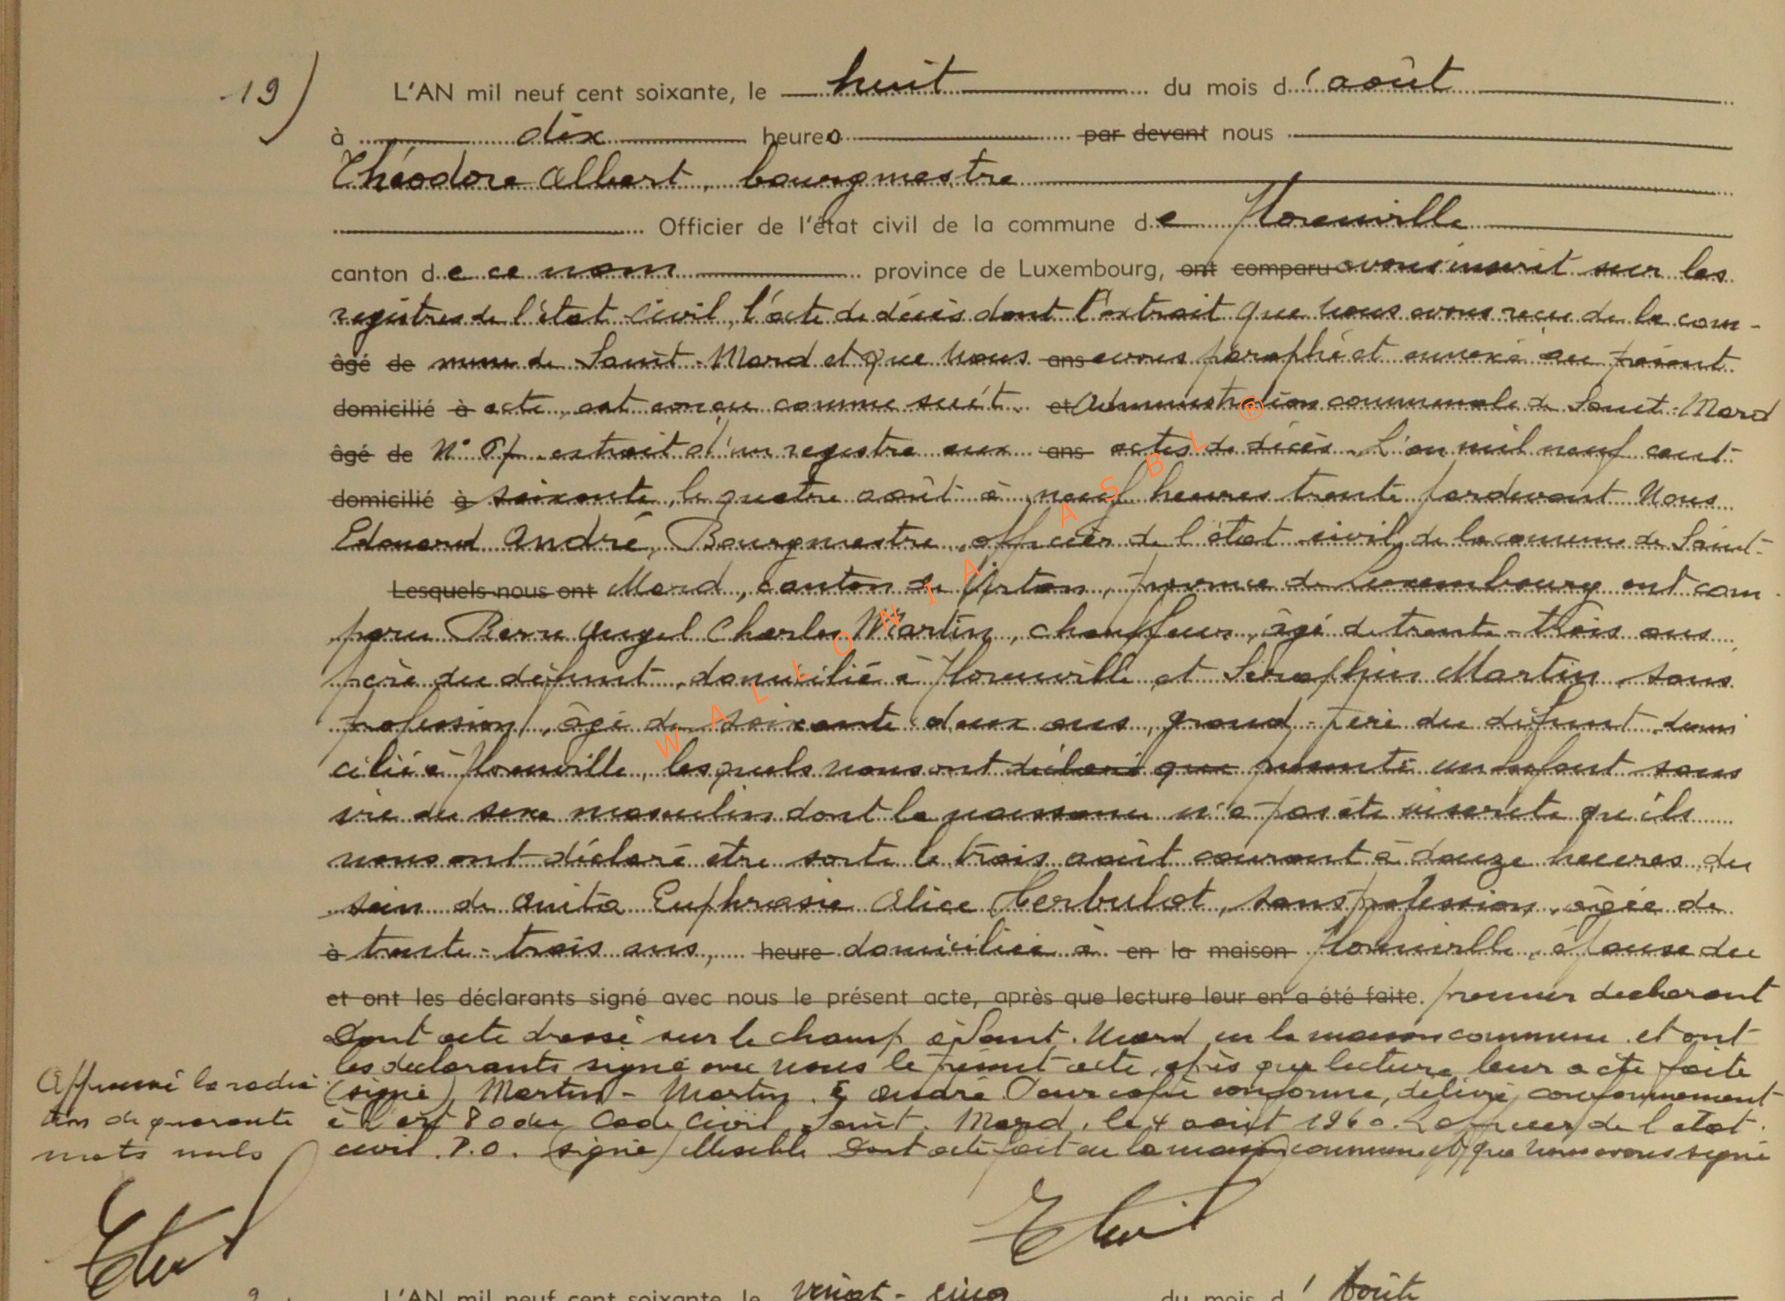 19)
L'AN mil neuf cent soixante, le huit du mois d'août
à dix heures par devant nous
Théodore Albert, bourgmestre
Officier de l'état civil de la commune de Florenville
canton de ce nom province de Luxembourg, ont comparu avons inscrit sur les
registres de l'état civil, l'acte de décès dont l'extrait que nous avons reçu de la com-
âgé de mune de Saint-Mard et que nous ans avons paraphé et annexé au présent
domicilié à acte, est conçu comme suit. et Administration communale de Saint-Mard
âgé de N° extrait d'un registre aux ans actes de décès. L'an mil neuf cent
domicilié à soixante, le quatre août à neuf heures trente pardevant Nous
Edouard André, Bourgmestre, officier de l'état civil de la commune de Saint-
Lesquels nous ont Mard, canton de Virton, province de Luxembourg ont com
paru Angel Charles Martin, chauffeur, âgé de trente-trois ans
père du défunt, domicilié à Florenville et Séraphin Martin, sans
profession, âgé de soixante deux ans, grand-père du défunt domi
cilié à Florenville, lesquels nous ont déclaré que présenté un enfant sans
vie du sexe masculin dont la naissance n'a pas été inscrite qu'ils
nous ont déclaré être sorti le trois août courant à douze heures du
sein de Anita Euphrasie Alice Herbulot, sans profession, âgée de
à trente-trois ans, heure domiciliée à en la maison Florenville, épouse du
et ont les déclarants signé avec nous le présent acte, après que lecture leur en a été faite. premier déclarant
Dont acte dressé sur le champ à Saint-Mard en la maison commune et ont
les déclarants signé avec nous le présent acte, après que lecture leur a été faite
(signé) Martin - Martin. E André Pour copie conforme, délivré conformément
à l'art 80 du Code Civil Saint-Mard, le 4 août 1960. L'officier de l'état
civil. P.O. (signé) illisible Dont acte fait en la maison commune et que nous avons signé
Approuvé la radia
tion de quarante
mots nuls
L'AN mil neuf cent soixante, le vingt-cinq du mois d'Août
WALLONIA ASBL ®